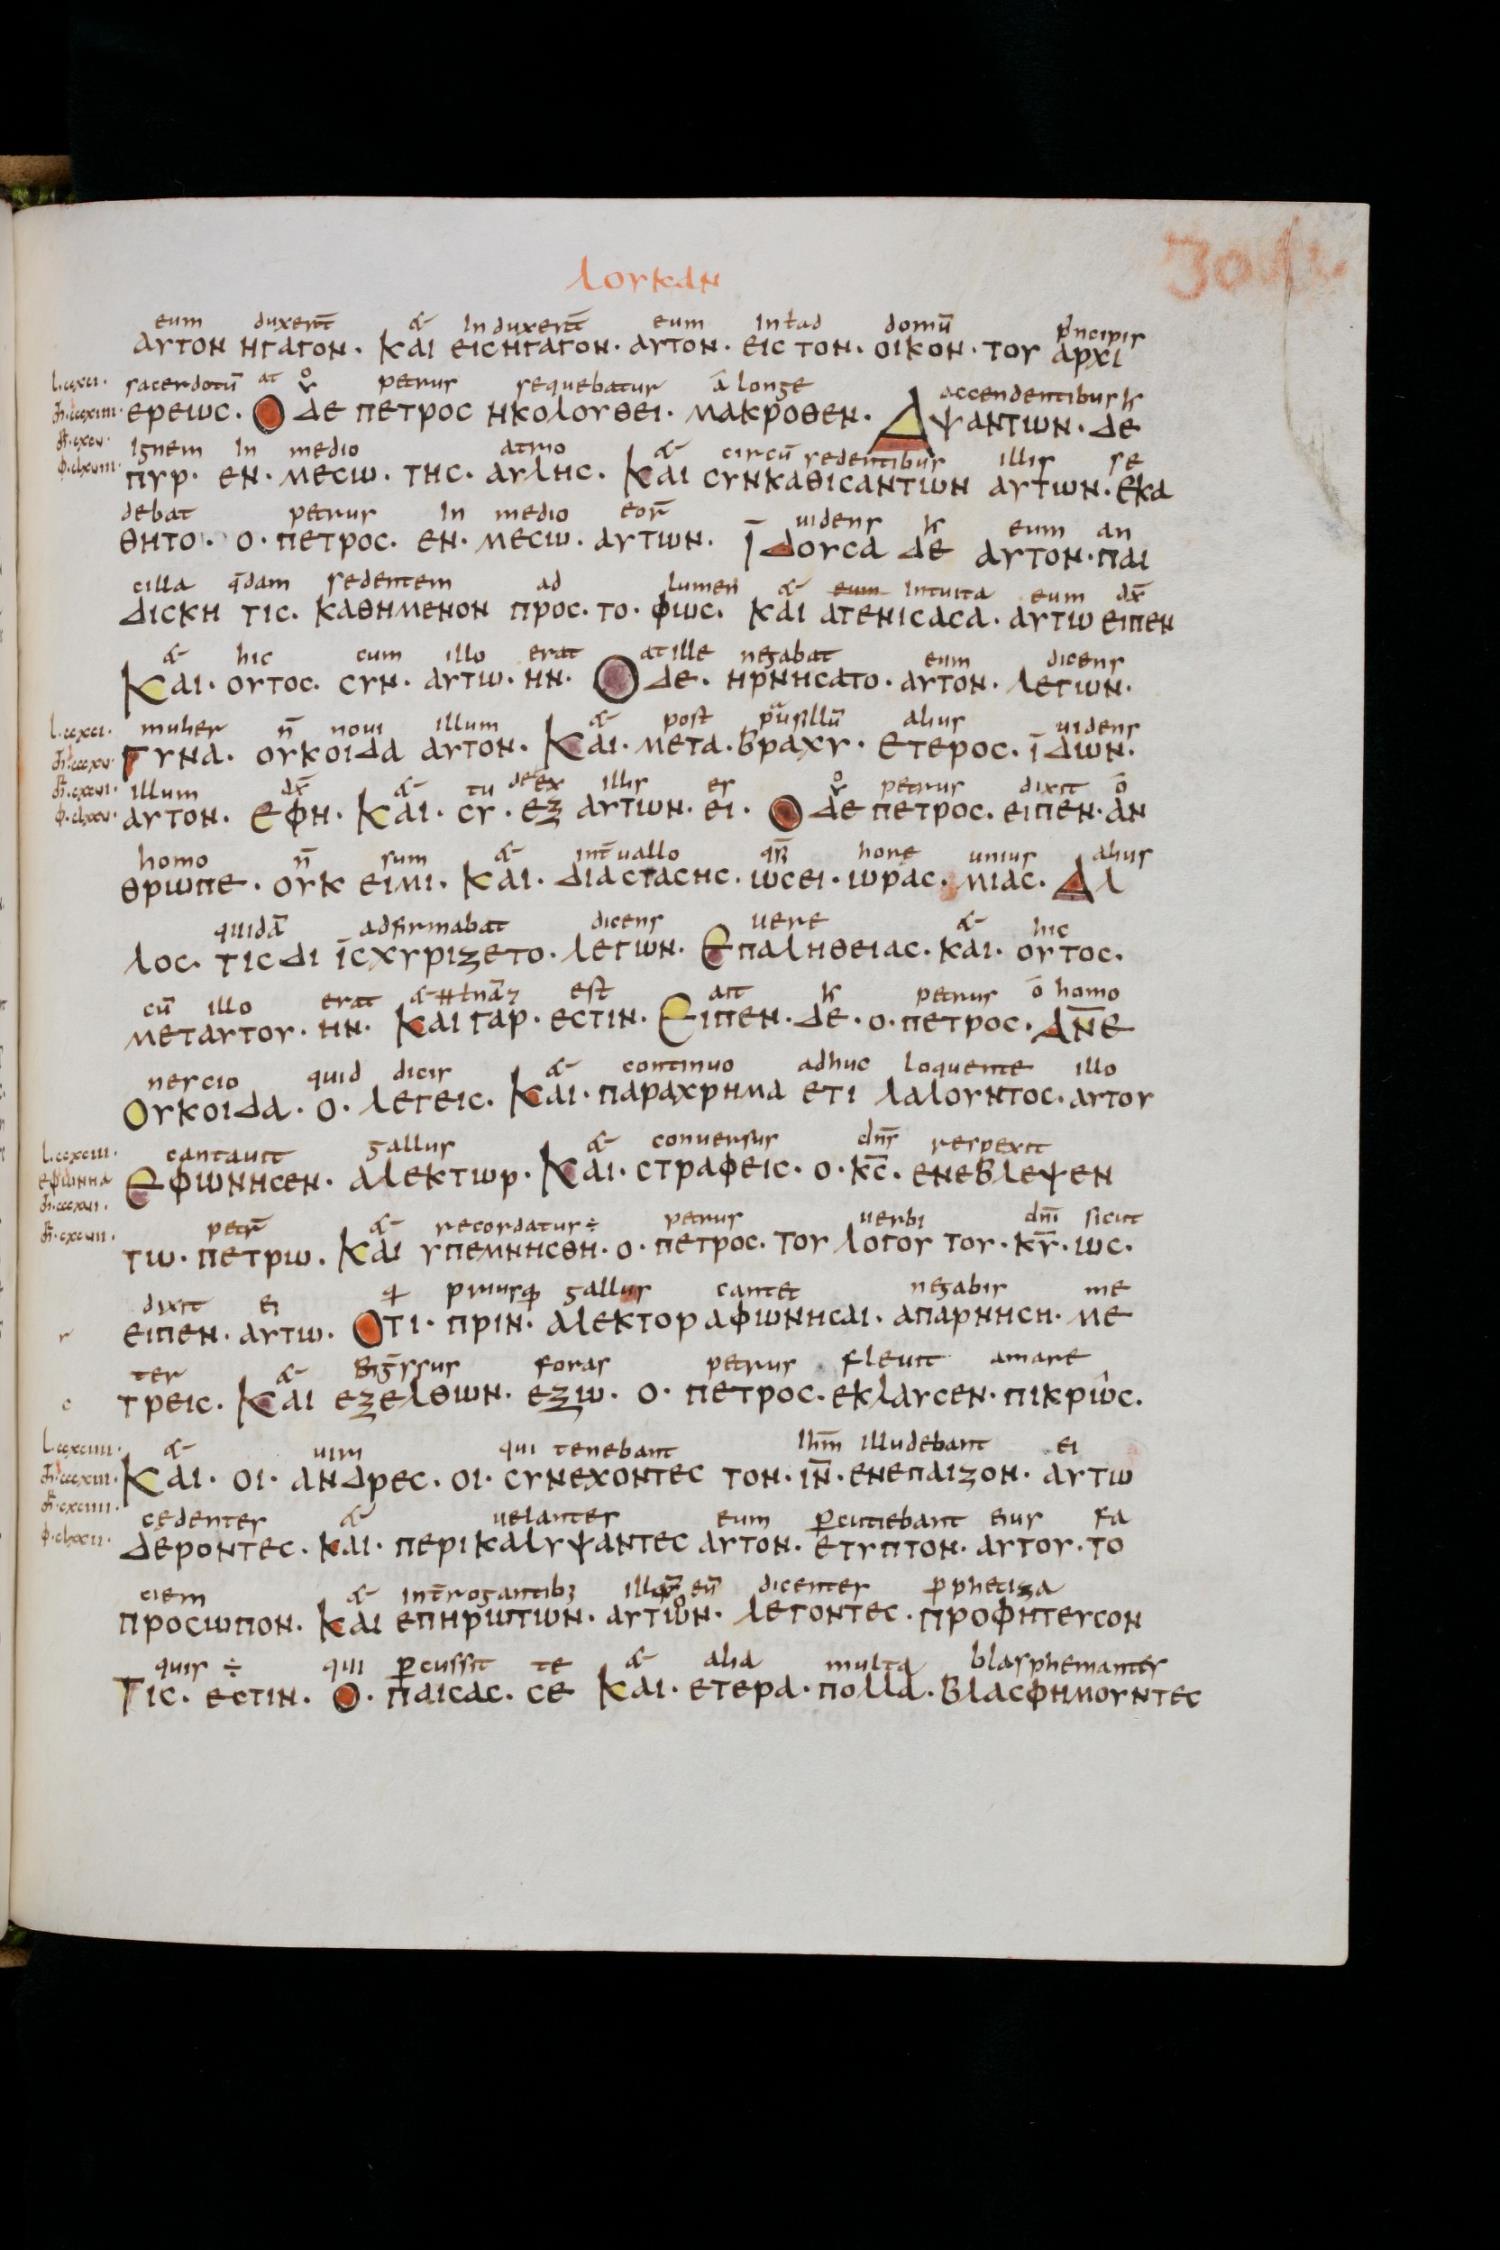 λουκαν
eum duxert̄ & Induxert̄ eum Int ł ad domū p̄ncipis
αυτον ηγαγον· Και εισηγαγον· αυτον· εις τον· οικον· του αρχι
sacerdotū at petrus sequebatur ā longe accendentibus
ερειως· Ο δε πετρος ηκολουθει· μακροθεν· Δψαντιων· δε
Ignem In medio atrio & circū sedentibus illis se
πυρ· εν· μεσω· της· αυλης· Και συνκαθισαντιων αυτων· εκα
debat petrus In medio eoȓ uidens eum an
θητο· ο· πετρος· εν· μεσω· αυτων· Ϊδουσα δε αυτον· παι
cilla q̄dam sedentem ad lumen & eum Intuita eum dx̄
δισκη τις· καθημενον προς· το· φως· και ατενισασα· αυτω ειπεν
& hic cum illo erat at ille negabat eum dicens
Και· ουτος· συν· αυτω· ην· Ο δε· ηρνησατο· αυτον· λεγων·
mulier n̄ noui illum & post pusillū alius uidens
Γυνα· ουκοιδα αυτον· Και· μετα· βραχυ· ετερος· ϊδων·
illum dx̄ & tu de ex illis es petrus dixit ō
αυτον· εφη· Και· συ· εξ αυτων· ει· Ο δε πετρος· ειπεν· αν
homo n̄ sum & int̄uallo hore unius alius
θρωπε· ουκ ειμι· Και· διαστασης· ωσει· ωρας· μιας· Δλ
quidā adfirmabat dicens uere & hic
λος· τις δι ϊσχυριζετο· λεγων· Επαληθειας· και· ουτος·
cū illo erat & est ait petrus ō homo
μεταυτου· ην· Και γαρ· εστιν· Ειπεν· δε· ο· πετρος· ΔΝ̄Ε
nescio quid dicis & continuo adhuc loquente illo
Ουκοιδα· ο· λεγεις· Και· παραχρημα ετι λαλουντος· αυτου
cantauit gallus & conuersus dn̄s respexit
Εφωνησεν· αλεκτωρ· Και· στραφεις· ο· κ̄ς· ενεβλεψεν
petȓ & recordatus ÷ petrus uerbi dn̄i sicut
τω· πετρω· Και υπεμνησθη· ο· πετρος· του λογου του· κ̄υ· ως·
dixit ei priusq gallus cantet negabis me
ειπεν· αυτω· Οτι· πριν· αλεκτορ αφωνησαι· απαρνηση· με
ter & foras petrus fleuit amare
τρεις· Και εξελθων· εξω· ο· πετρος· εκλαυσεν· πικρως·
& uiri qui tenebant Ihm̄ illudebant ei
Και· οι· ανδρες· οι· συνεχοντες τον· ιν̄· ενεπαιζον· αυτω
cędentes & uelantes eum p̲cutiebant eius fa
δεροντες· και· περικαλυψαντες αυτον· ετυπτον· αυτου· το
ciem & int̄rogantibȝ eū dicentes p̱phetiza
προσωπον· Και επηρωτων· αυτων· λεγοντες· προφητευσον
quis ÷ qui p̲cussit te & alia multa blasphemantes
Τις· εστιν· Ο· παισας· σε Και· ετερα· πολλα· βλασφημουντες